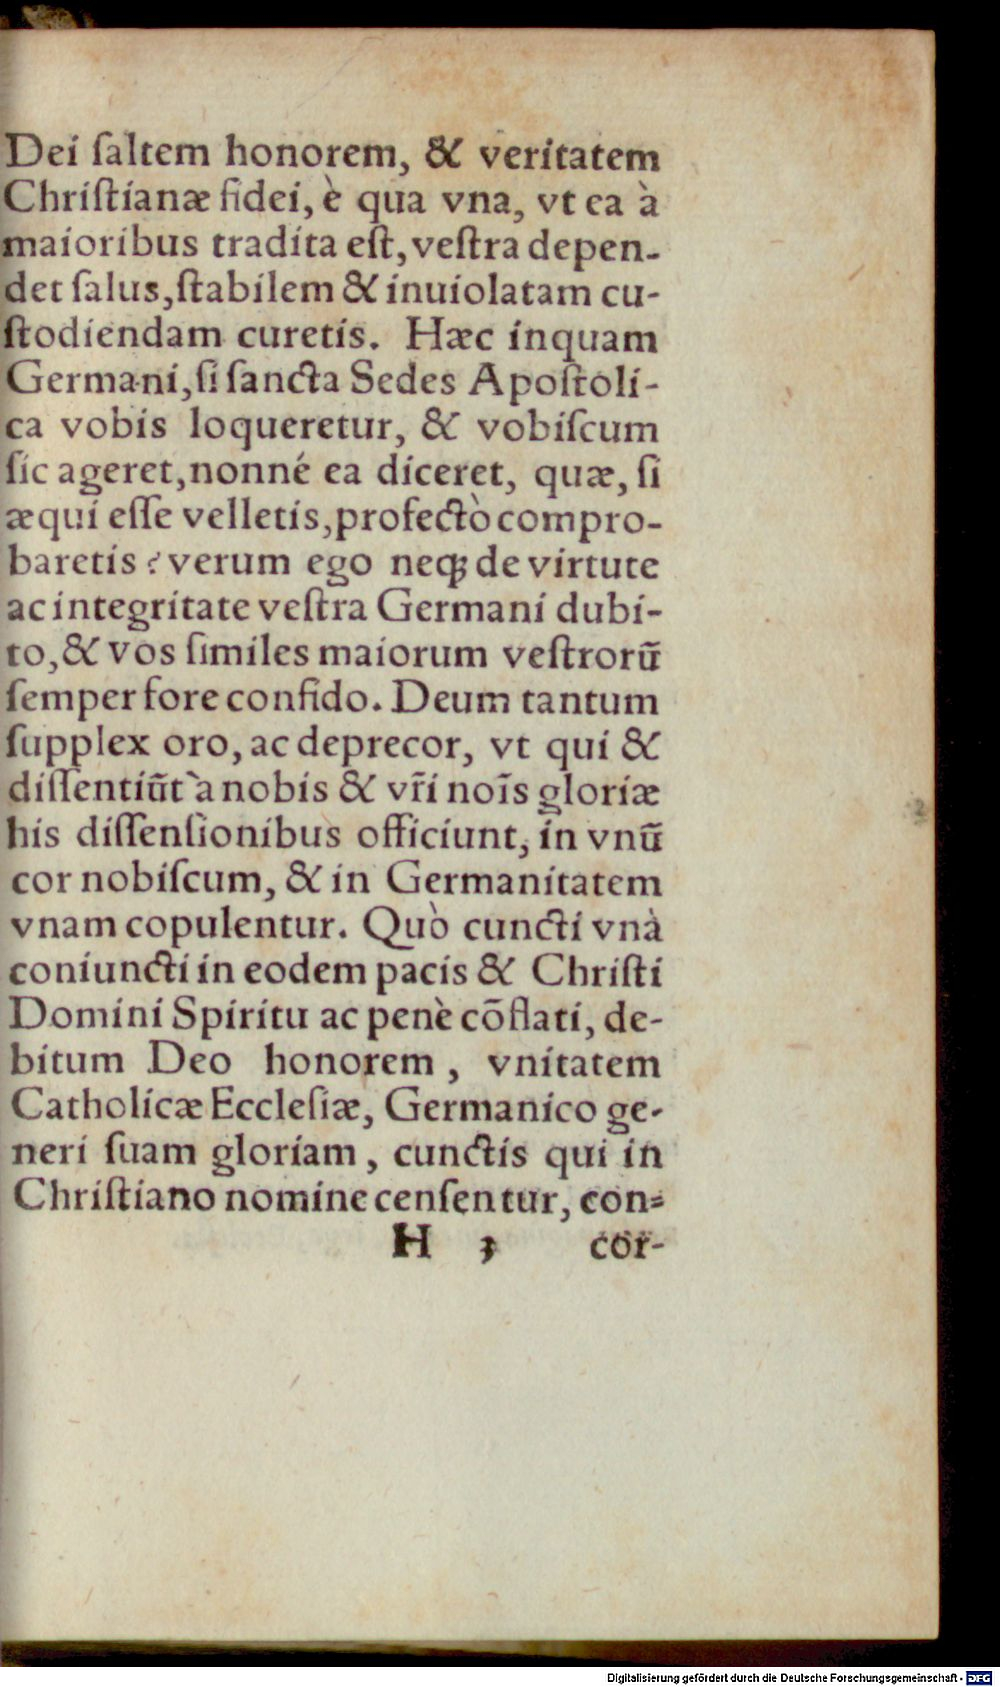 Dei ſaltem honorem, & veritatem
Chriſtianæ fidei, è qua vna, vt ea à
maioribus tradita eſt, veſtra depen-
det ſalus, ſtabilem & inuiolatam cu-
ſtodiendam curetis. Hæc inquam
Germani, ſi ſancta Sedes Apoſtoli-
ca vobis loqueretur, & vobiſcum
ſic ageret, nonné ea diceret, quæ, ſi
æqui eſſe velletis, profectò compro-
baretis? verum ego neqꝫ de virtute
ac integritate veſtra Germani dubi-
to, & vos ſimiles maiorum veſtrorũ
ſemper fore confido. Deum tantum
ſupplex oro, ac deprecor, vt qui &
diſſentiũt à nobis & vr̃i noĩs gloriæ
his diſſenſionibus officiunt, in vnũ
cor nobiſcum, & in Germanitatem
vnam copulentur. Quò cuncti vnà
coniuncti in eodem pacis & Chriſti
Domini Spiritu ac penè cõflati, de-
bitum Deo honorem, vnitatem
Catholicæ Eccleſiæ, Germanico ge-
neri ſuam gloriam, cunctis qui in
Chriſtiano nomine cenſentur, con-
H 3 cor-
Digitalisierung gefördert durch die Deutsche Forschungsgemeinschaft - DFG